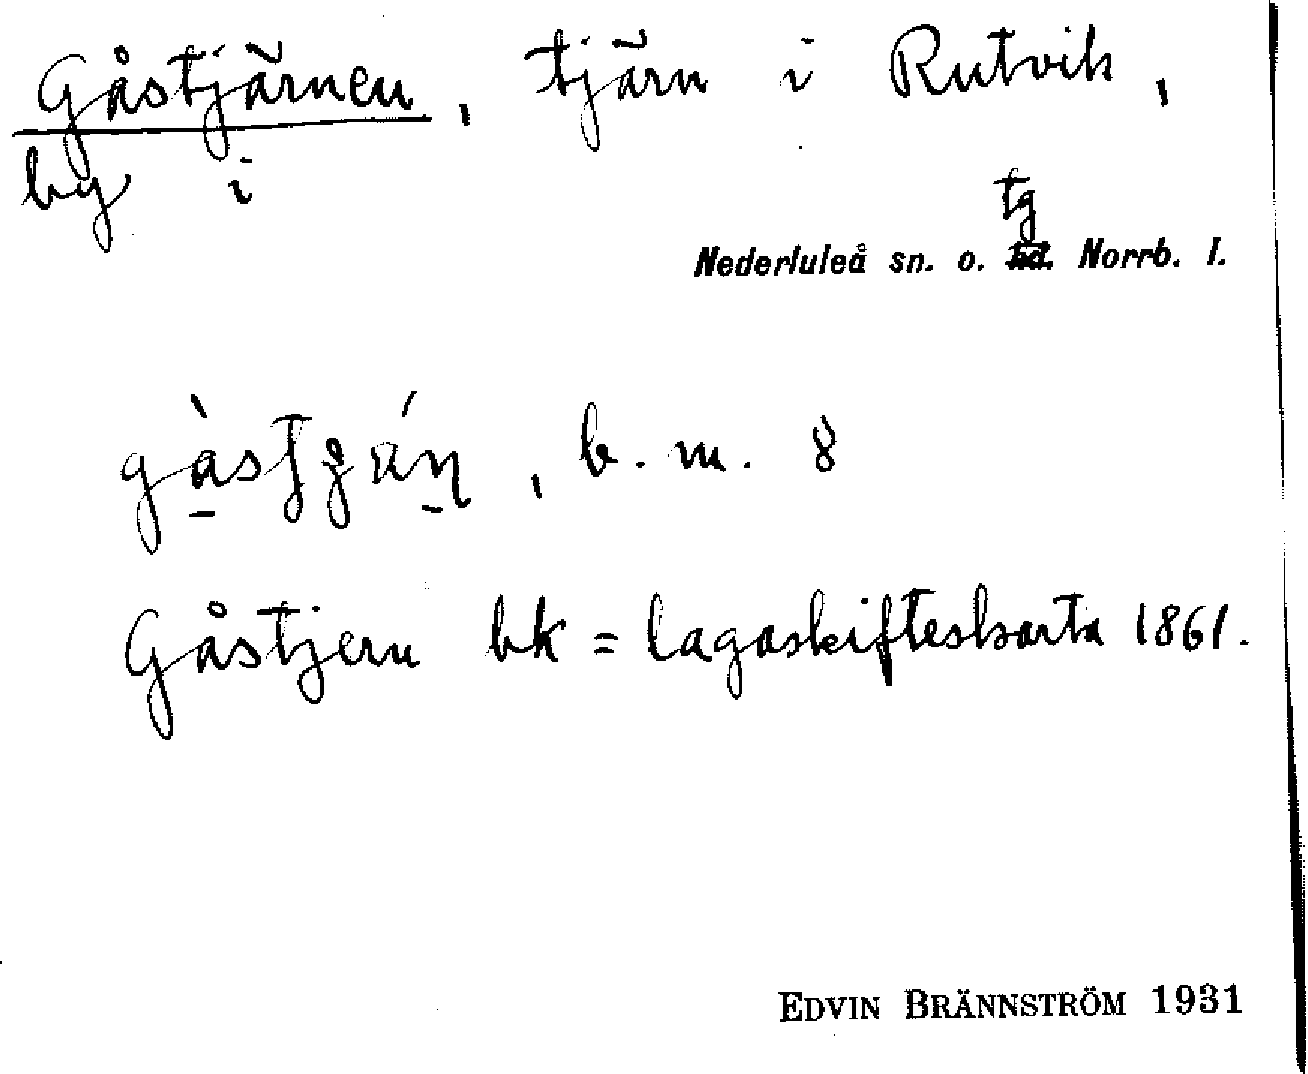 Gåstjärnen, tjärn i Rutvik,
by i
tg
Nederluleå sn. o. hd. Norrb. l.
, b. m. 8
Gåstjern bk = lagaskifteskarta 1861.
EDVIN BRÄNNSTRÖM 1931